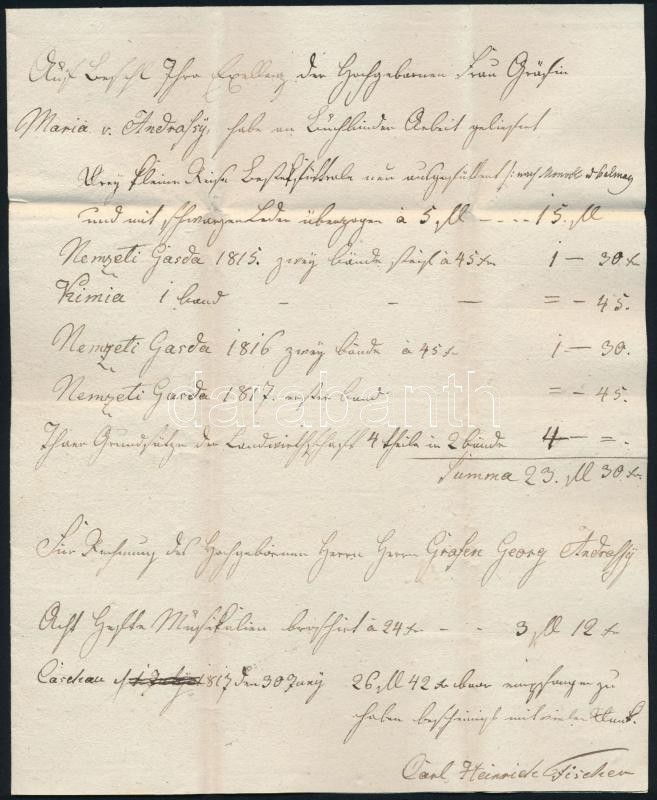 Auf Befehl Ihro Exellenz der Hochgebornen Frau Gräfin
Maria v. Andrassy, habe an Buchbinder Arbeit geliefert
Drey kleine Reise Besteckfutterale neu ausgefüttert
und mit schwarzen Leder überzogen à 5 fl - - - - 15. fl
Nemzeti Gasda 1815. zwey bände à 45 kr 1 — 30 kr
Kimia 1 band - - — = - 45.
Nemzeti Gasda 1816 zwey bände à 45 kr 1 — 30.
Nemzeti Gasda 1817. erster band = - 45.
Thaer Grundsätze der Landwirthschaft 4 theile in 2 bände 4 — = -
Summa 23. fl 30 kr.
Für Rechnung des Hochgebornen Herrn Herrn Grafen Georg Andrassy
Acht Hefte Musikalien broschirt à 24 kr - - 3 fl 12 kr
Caschau 1817 den 30 Juny 26 fl 42 kr baar empfangen zu
haben bescheinigt mit vielen Dank.
Carl Heinrich Fischer
darabanth